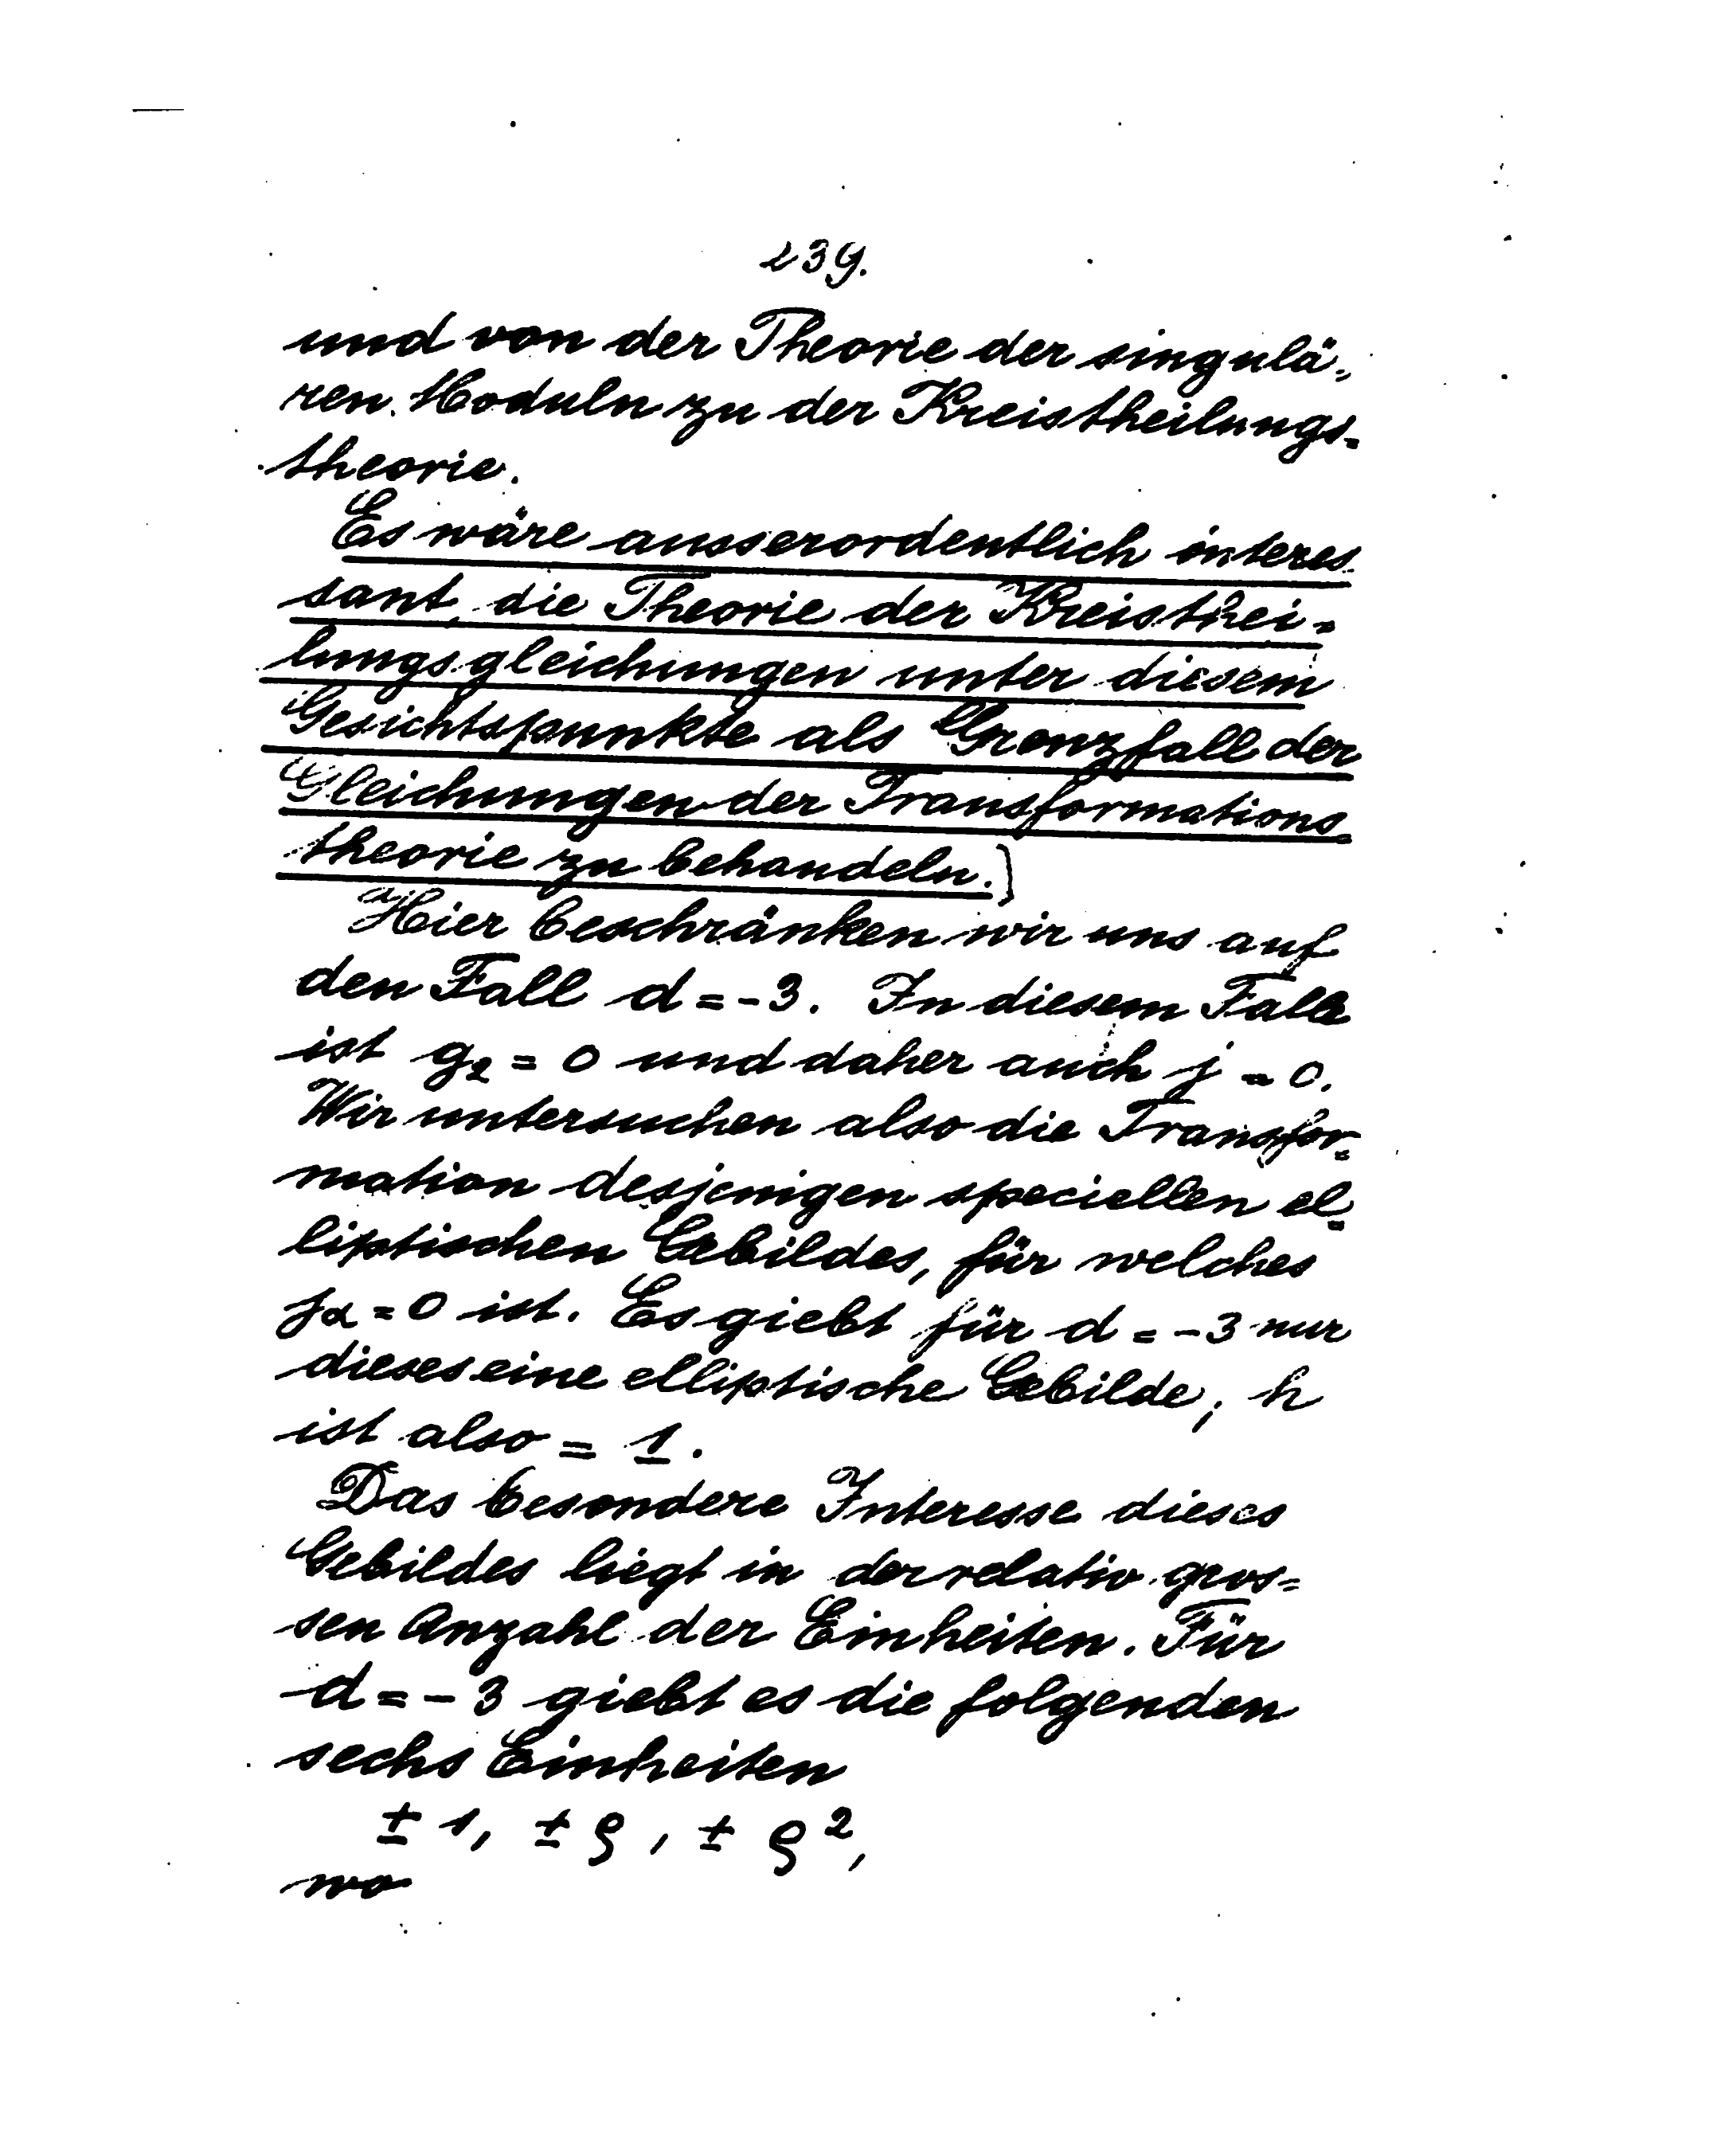 239.
und von der Theorie der singulä-
ren Moduln zu der Kreistheilungs-
theorie.
Es wäre ausserordentlich interes
sant, die Theorie der Kreisthei-
lungsgleichungen unter diesem
Gesichtspunkte als Grenzfall der
Gleichungen der Transformations-
theorie zu behandeln.)
Hier beschränken wir uns auf
den Fall d = -3. In diesem Falle
ist g₂ = 0 und daher auch j = 0.
Wir untersuchen also die Transfor-
mation desjenigen speciellen el-
liptischen Gebildes, für welches
jα = 0 ist. Es giebt für d = -3 nur
dieses eine elliptische Gebilde, h
ist also = 1.
Das besondere Interesse dieses
Gebildes liegt in der relativ gros-
sen Anzahl der Einheiten. Für
d = -3 giebt es die folgenden
sechs Einheiten
± 1, ± ϱ, ± ϱ²,
wo